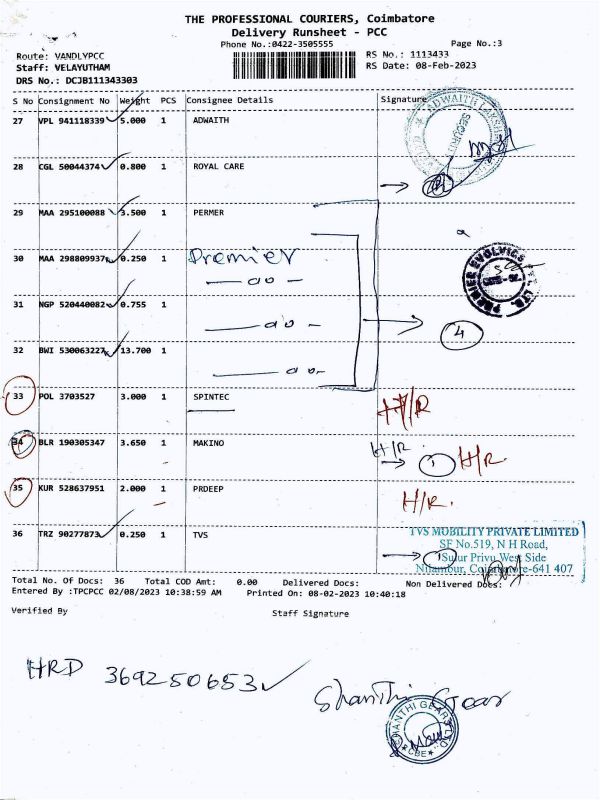 THE PROFESSIONAL COURIERS, Coimbatore
Delivery Runsheet - PCC
Phone No.:0422-3505555
Page No.:3
Route: VANDLYPCC
RS No.: 1113433
Staff: VELAYUTHAM
RS Date: 08-Feb-2023
DRS No.: DCJB111343303
S No Consignment No Weight PCS Consignee Details Signature
27 VPL 941118339 5.000 1 ADWAITH
ADWAITH LAKSH
SECURITY
28 CGL 50044374 0.800 1 ROYAL CARE
29 MAA 295100088 3.500 1 PERMER
30 MAA 298809937 0.250 1 Premier
PREMIER EVOLVICS LTD.
— do —
31 NGP 520440082 0.755 1
— do —
4
32 BWI 530063227 13.700 1
— do —
33 POL 3703527 3.000 1 SPINTEC H/R
34 BLR 190305347 3.650 1 MAKINO H/R 1 H/R.
35 KUR 528637951 2.000 1 PRDEEP H/R.
36 TRZ 90277873 0.250 1 TVS
TVS MOBILITY PRIVATE LIMITED
SF No.519, N H Road,
Sulur Privu West Side
Nilambur, Coimbatore-641 407
Total No. Of Docs: 36 Total COD Amt: 0.00 Delivered Docs: Non Delivered Docs:
Entered By :TPCPCC 02/08/2023 10:38:59 AM Printed On: 08-02-2023 10:40:18
Verified By Staff Signature
HRD 369250653
Shanthi Gear
SHANTHI GEARS LTD
CBE